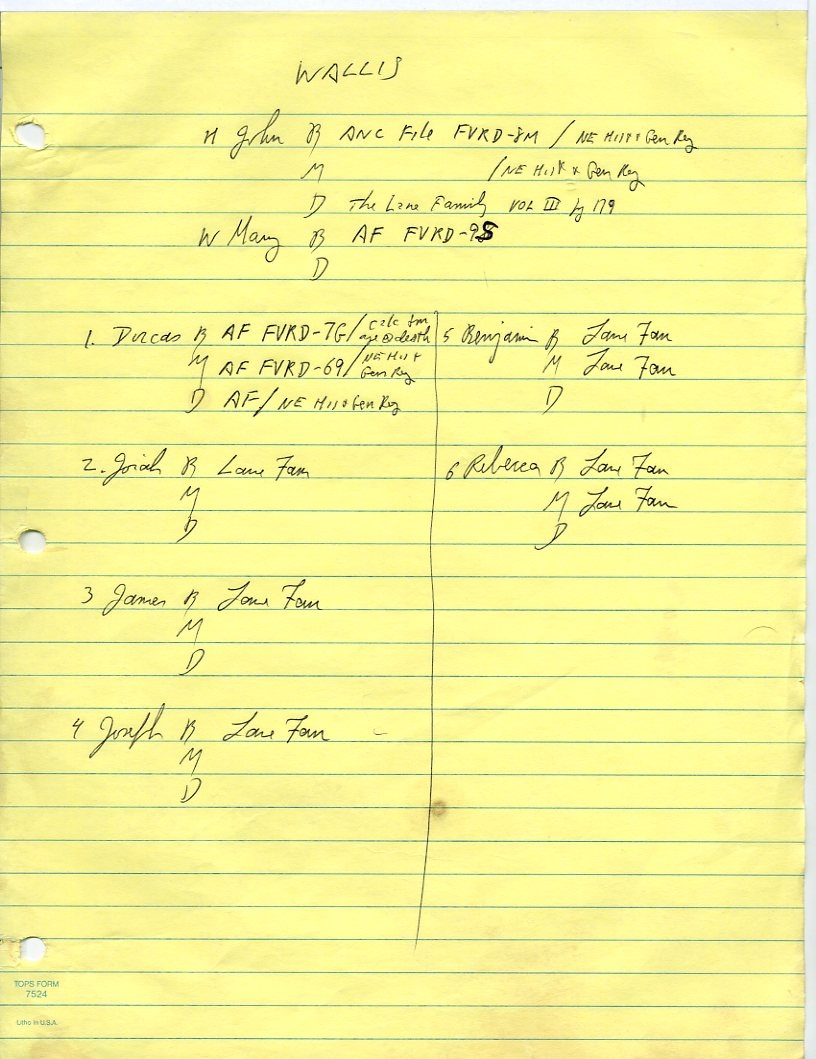 WALLIS
H John B ANC File FVRD-8M / NE Hist & Gen Reg
M / NE Hist & Gen Reg
D The Lane Family VOL III pg 179
W Mary B AF FVRD-98
D
1. Dorcas B AF FVRD-7G / calc fm age @ death
M AF FVRD-69 / NE Hist & Gen Reg
D AF / NE Hist & Gen Reg
2. Josiah B Lane Fam
M
D
3 James B Lane Fam
M
D
4 Joseph B Lane Fam
M
D
5 Benjamin B Lane Fam
M Lane Fam
D
6 Rebecca B Lane Fam
M Lane Fam
D
TOPS FORM
7524
Litho in U.S.A.